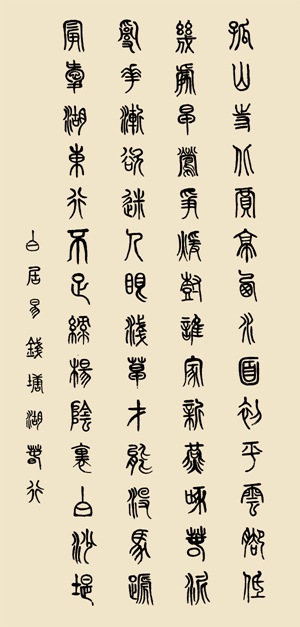 孤山寺北賈亭西水面初平雲腳低
幾處早鶯爭暖樹誰家新燕啄春泥
亂花漸欲迷人眼淺草才能沒馬蹄
最愛湖東行不足綠楊陰裏白沙堤
白居易錢塘湖春行